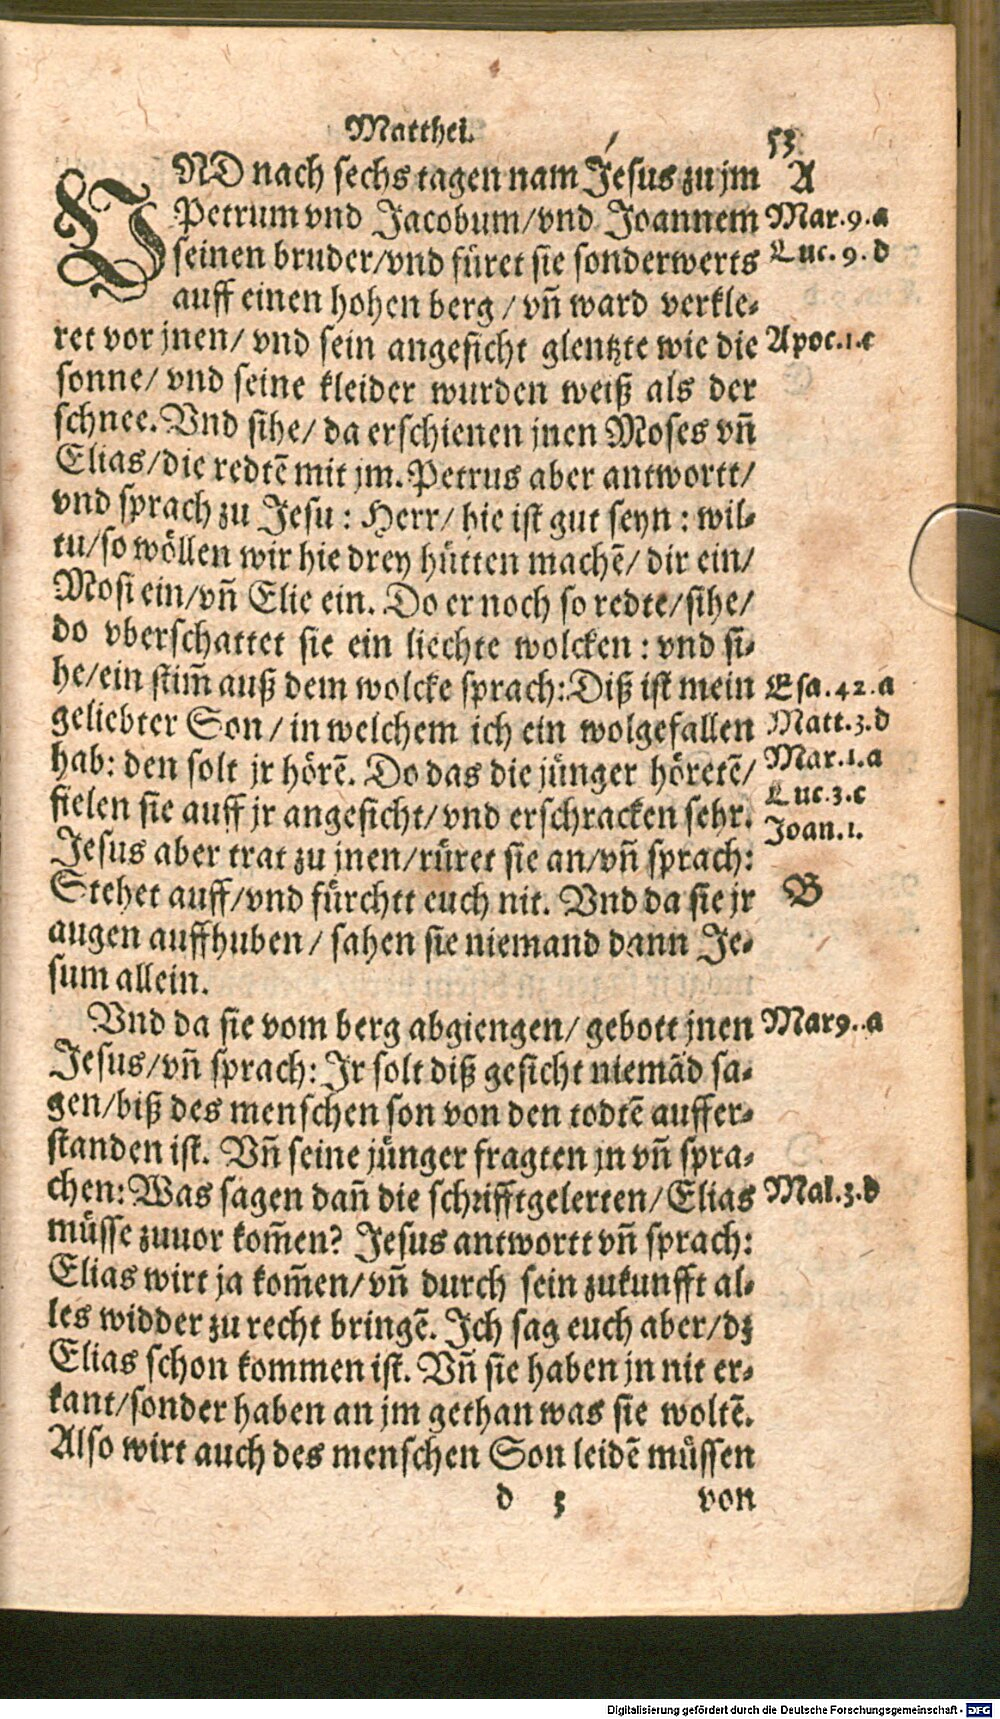 Matthei. 53
VND nach sechs tagen nam Jesus zu jm A
Petrum vnd Jacobum/vnd Joannem Mar.9.a
seinen bruder/vnd füret sie sonderwerts Luc.9.d
auff einen hohen berg/vñ ward verkle⸗
ret vor jnen/ vnd sein angesicht glentzte wie die Apoc.1.c
sonne/ vnd seine kleider wurden weiß als der
schnee. Vnd sihe/ da erschienen jnen Moses vñ
Elias/die redtẽ mit jm. Petrus aber antwortt/
vnd sprach zu Jesu: Herr/ hie ist gut seyn: wil⸗
tu/so wöllen wir hie drey hütten machẽ/ dir ein/
Mosi ein/vñ Elie ein. Do er noch so redte/sihe/
do vberschattet sie ein liechte wolcken: vnd si⸗
he/ein stim̃ auß dem wolcke sprach: Diß ist mein Esa.42.a
geliebter Son/ in welchem ich ein wolgefallen Matt.3.d
hab: den solt jr hörẽ. Do das die jünger höretẽ/ Mar.1.a
fielen sie auff jr angesicht/ vnd erschracken sehr. Luc.3.c
Jesus aber trat zu jnen/rüret sie an/vñ sprach: Joan.1.
Stehet auff/vnd fürchtt euch nit. Vnd da sie jr B
augen auffhuben/ sahen sie niemand dann Je⸗
sum allein.
Vnd da sie vom berg abgiengen/ gebott jnen Mar9..a
Jesus/vñ sprach: Jr solt diß gesicht niemãd sa⸗
gen/biß des menschen son von den todtẽ auffer⸗
standen ist. Vñ seine jünger fragten jn vñ spra⸗
chen: Was sagen dañ die schrifftgelerten/Elias Mal.3.d
müsse zuuor kom̃en? Jesus antwortt vñ sprach:
Elias wirt ja kom̃en/vñ durch sein zukunfft al⸗
les widder zu recht bringẽ. Ich sag euch aber/dz
Elias schon kommen ist. Vñ sie haben jn nit er⸗
kant/sonder haben an jm gethan was sie woltẽ.
Also wirt auch des menschen Son leidẽ müssen
d 3 von
Digitalisierung gefördert durch die Deutsche Forschungsgemeinschaft - DFG